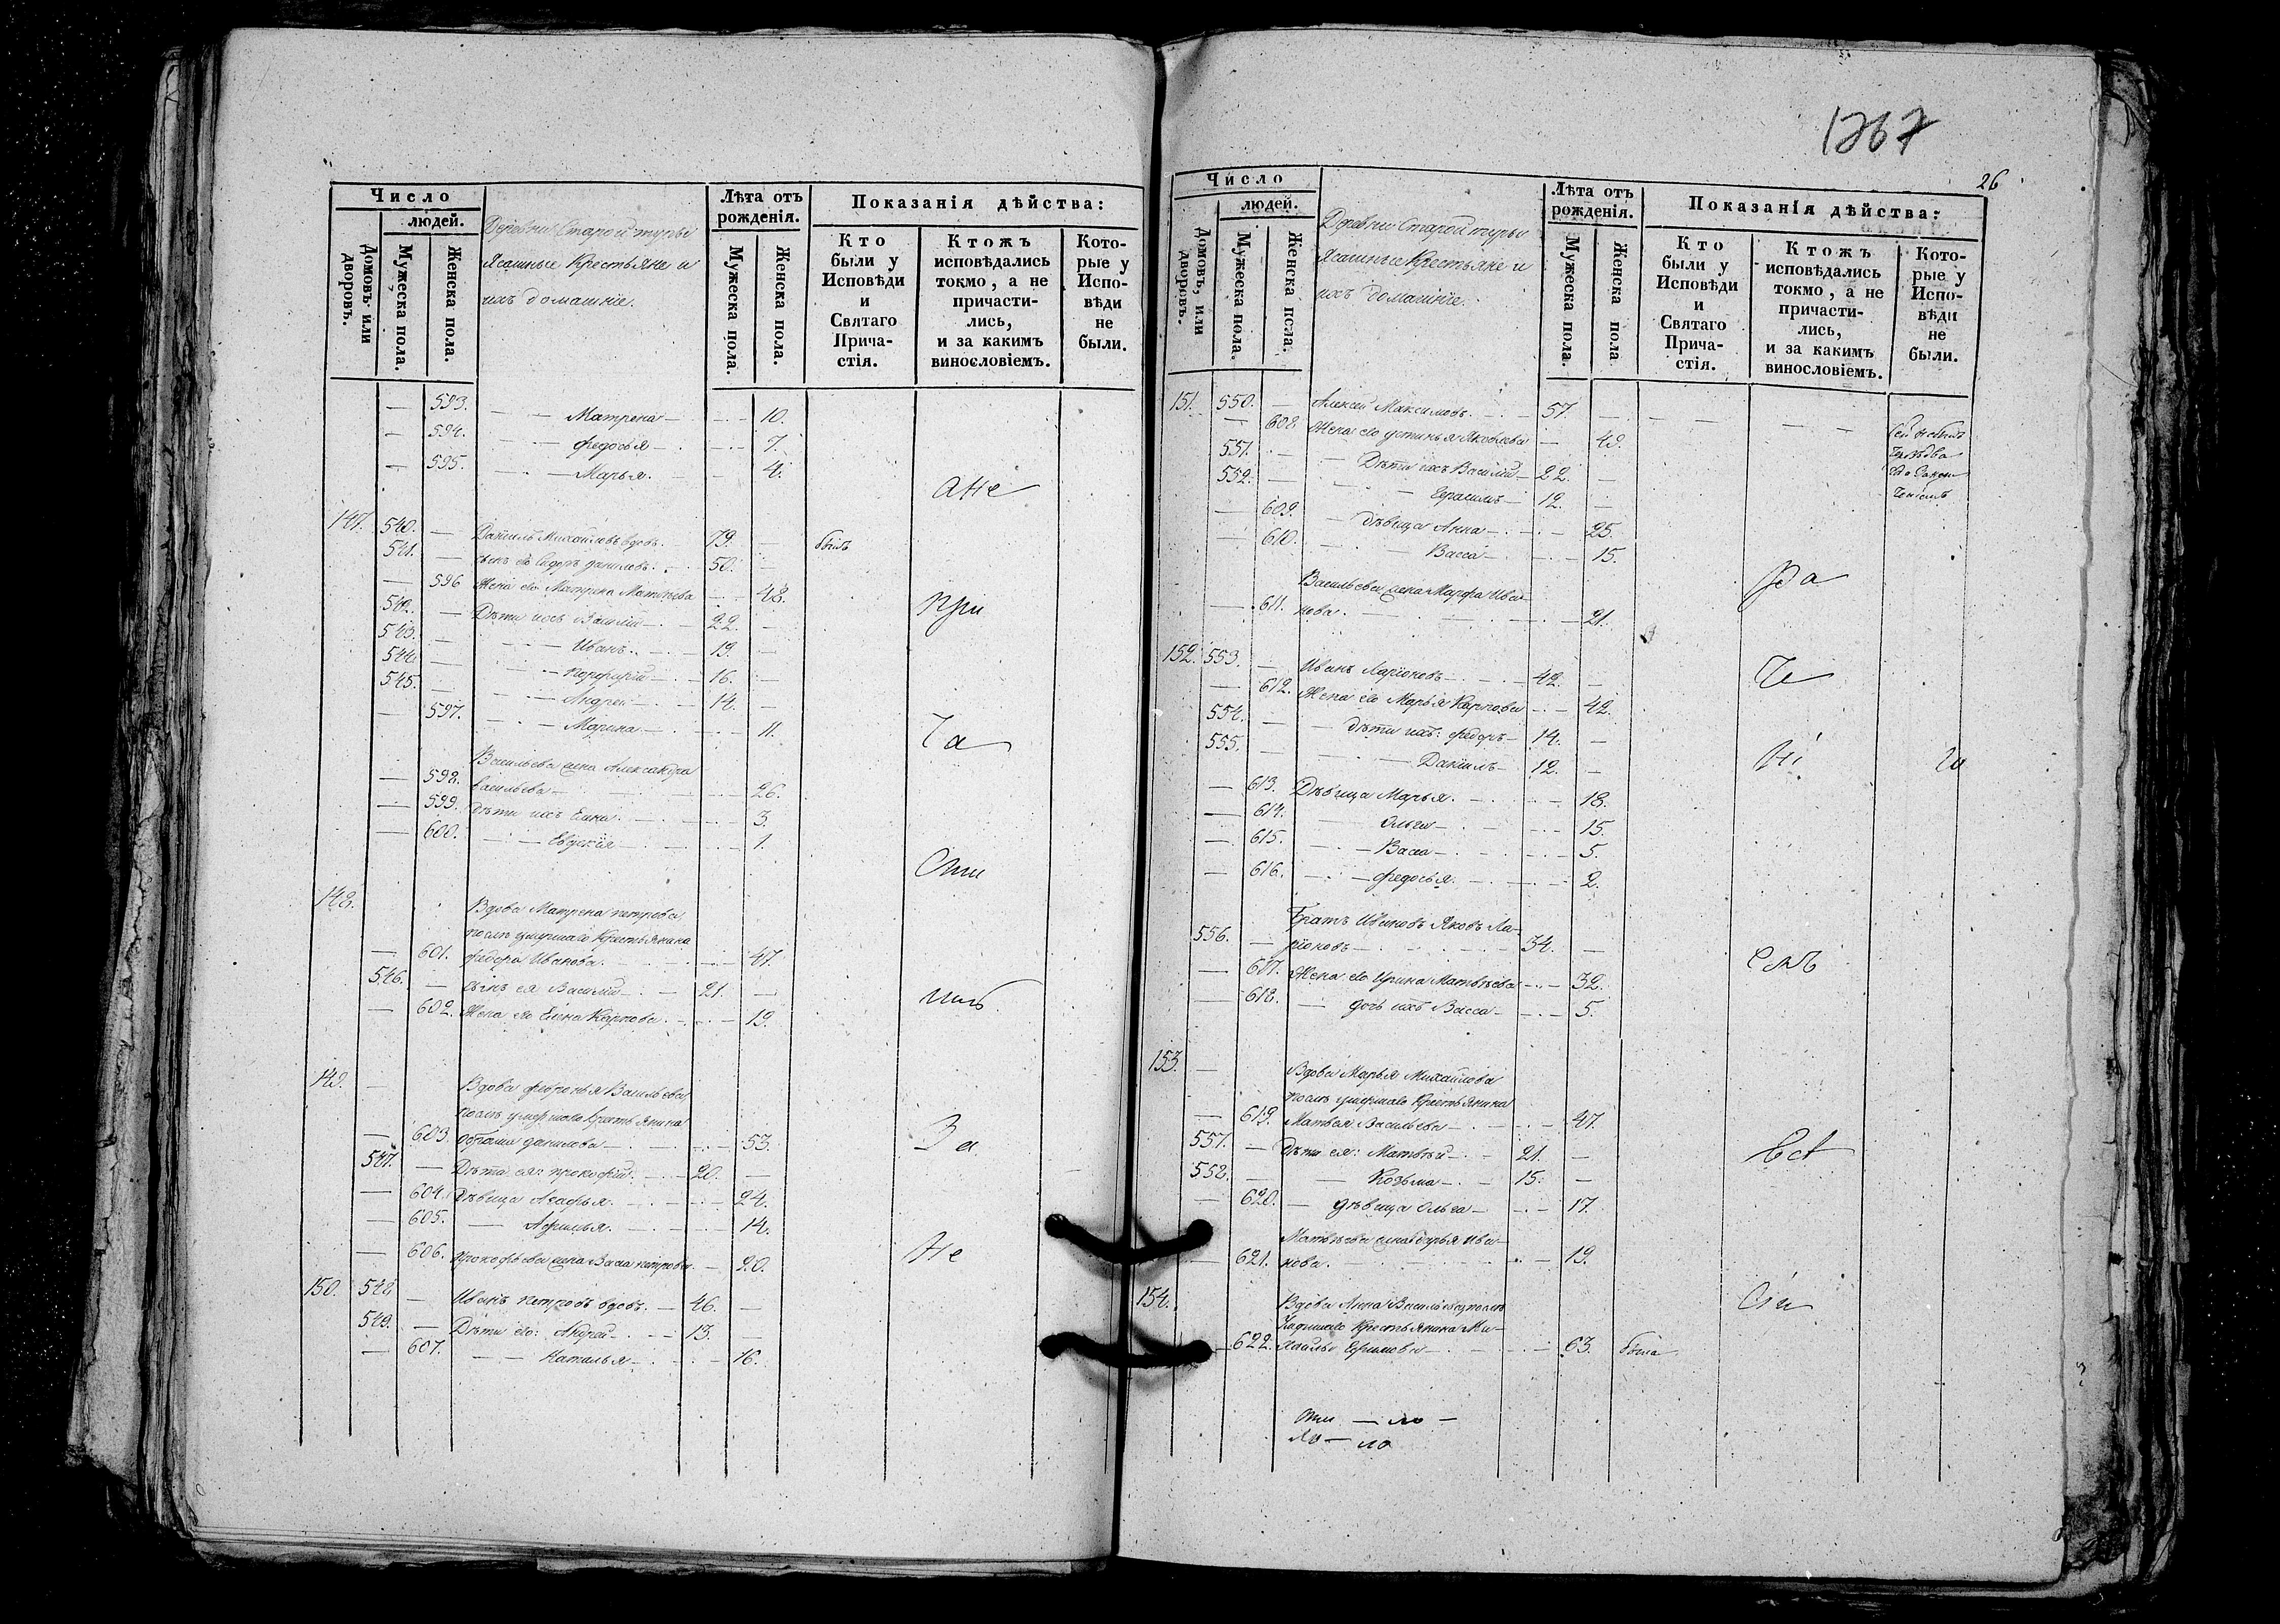 Число
людей.
Домовъ или дворовъ.
Мужеска пола.
Женска пола.
Деревни Старой турьи
Ясашные Крестьяне и
ихъ домашніе.
Лѣта отъ рожденія.
Мужеска пола.
Женска пола.
Показанія дѣйства:
Кто были у Исповѣди и Святаго Прича-стія.
Ктожъ исповѣдались токмо, а не причасти-лись, и за какимъ винословіемъ.
Кото-рые у Испо-вѣди не были.
— 593. — — Матрена — 10.
— 594. — — Федосья — 7.
— 595. — — Марья. — 4.
Оне
147. 540. — Даніилъ Михайловъ вдовъ. — 79. — былъ
541. — сынъ его Сидоръ Даниловъ. — 50. —
— 596 Жена его Матрена Матвѣева — 48.
при
542. — Дѣти ихъ Василій — 22. —
543. — Иванъ. — 19. —
544. — Порфирій — 16. —
545. — Андрей — 14. —
— 597. — Марина — 11.
ча
Васильева жена Александра
— 598. Васильева — 26.
— 599. Дѣти ихъ Елена. — 3.
— 600. — Евдокія — 1.
сти
148. Вдова Матрена петрова
послѣ умершаго Крестьянина
— 601. Федора Иванова. — 47.
546. — сынъ ея Василій — 21. —
— 602. Жена его Елена Карпова. — 19.
149. — Вдова Февронья Васильева
послѣ умершаго Крестьянина
— 603. данилова — 53.
за
547. — Дѣти ея: прокофій. — 20. —
— 604. Дѣвица Агафья. — 24.
— 605. — 14.
— 606. Прокофьева жена Васса петрова. — 20.
Не
150. 548. — Иванъ петровъ вдовъ. — 46. —
549. — Дѣти его: Андрей — 13. —
— 607. — — Наталья — 16.
1767
26
Число
людей.
Домовъ, или дворовъ.
Мужеска пола.
Женска пола.
Деревни Старой турьи
Ясашные Крестьяне и
ихъ домашніе.
Лѣта отъ рожденія.
Мужеска пола.
Женска пола
Показанія дѣйства:
Кто были у Исповѣди и Святаго Прича-стія.
Ктожъ исповѣдались токмо, а не причасти-лись, и за какимъ винословіемъ.
Кото-рые у Испо-вѣди не были.
151. 550. — Алексей Максимовъ. — 57. —
— 608. Жена его Устинья Яковлева — 49.
551. — Дѣти ихъ Василій — 22. —
552. — Герасимъ — 12. —
— 609. — дѣвица Анна — 25.
— 610. — Васса — 15.
ра
Васильева жена Марфа Ива-
— 611. нова. — 21.
152. 553. — Иванъ Ларіоновъ — 42. —
че
— 612. Жена его Марья Карпова — 42.
554. — дѣти ихъ: федоръ — 14. —
555. — Даніилъ — 12. —
ні
— 613. Дѣвица Марья. — 18.
— 614. — Ольга — 15.
— 615. — Васса — 5.
— 616. — федосья. — 2.
Братъ Ивановъ Яковъ Ла-
556. — ріоновъ — 34. —
емъ
— 617. Жена его Ирина Матвѣева — 32.
— 618. — дочь ихъ Васса — 5.
153. — Вдова Марья Михайлова
послѣ умершаго Крестьянина
— 619. Матвея Васильева — 47.
557. — Дѣти ея: Матвѣй — 21. —
558. — Козьма — 15. —
— 620. — дѣвица Ольга — 17.
Матвѣева жена Дарья Ива-
— 621. нова. — 19.
154. Вдова Анна Васильева послѣ
умершаго Крестьянина Ми-
— 622. хайлы Ефимова — 63. была